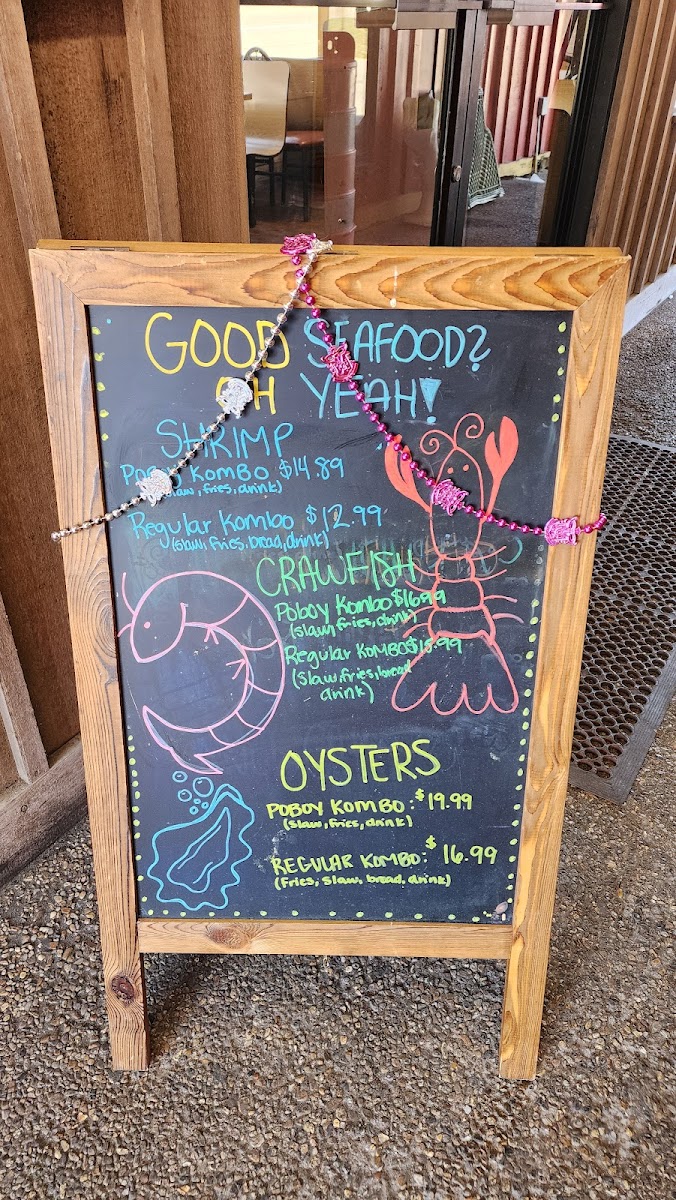 GOOD SEAFOOD?
OH YEAH!
SHRIMP
Poboy Kombo $14.89
(slaw, fries, drink)
Regular Kombo $12.99
(slaw, fries, bread, drink)
CRAWFISH
Poboy Kombo $16.99
(slaw, fries, drink)
Regular KOMBO
(slaw, fries, bread
drink)
OYSTERS
POBOY KOMBO: $19.99
(slaw, fries, drink)
REGULAR KOMBO: $16.99
(fries, slaw, bread, drink)